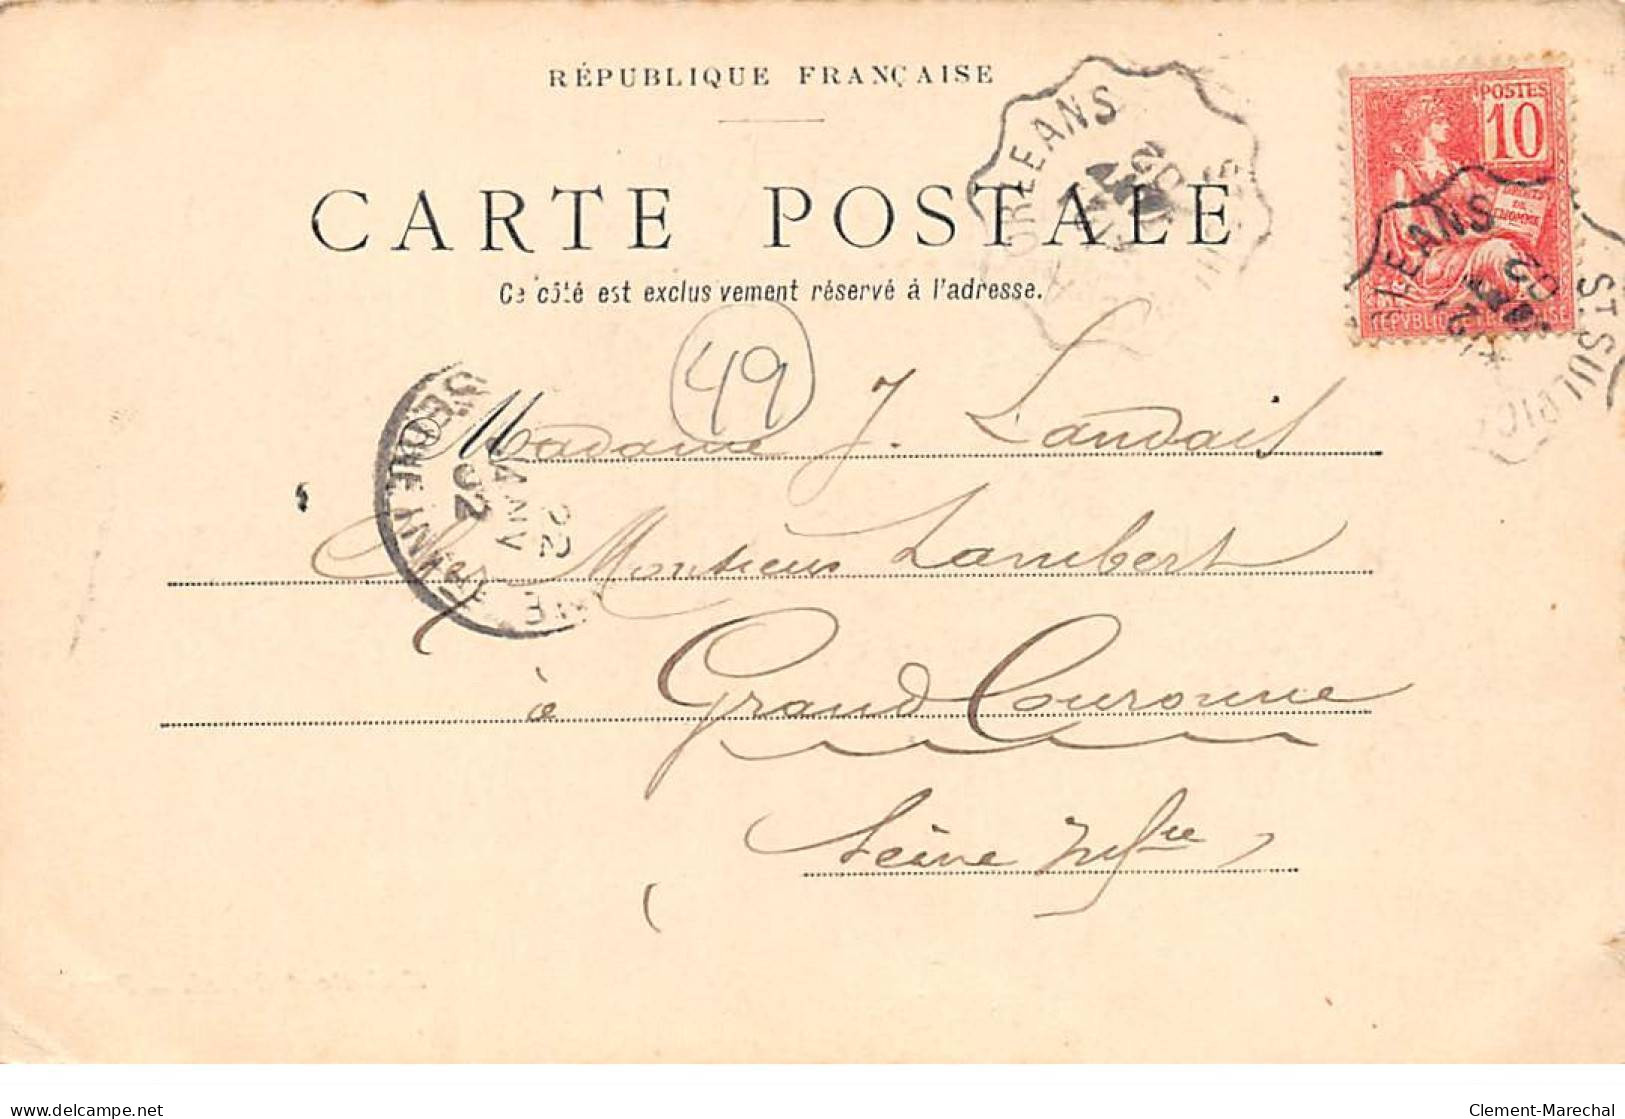 RÉPUBLIQUE FRANÇAISE
CARTE POSTALE
Ce côté est exclusivement réservé à l'adresse.
ORLEANS
POSTES
10
DE
L'HOMME
LEANS
ST. SULPICE
REPVBLIQUE FRANÇAISE
49
22
JANV
02
Madame J. Landais
Chez Monsieur Lambert
à Grand Couronne
Seine Infre
delcampe.net
Clement-Marechal